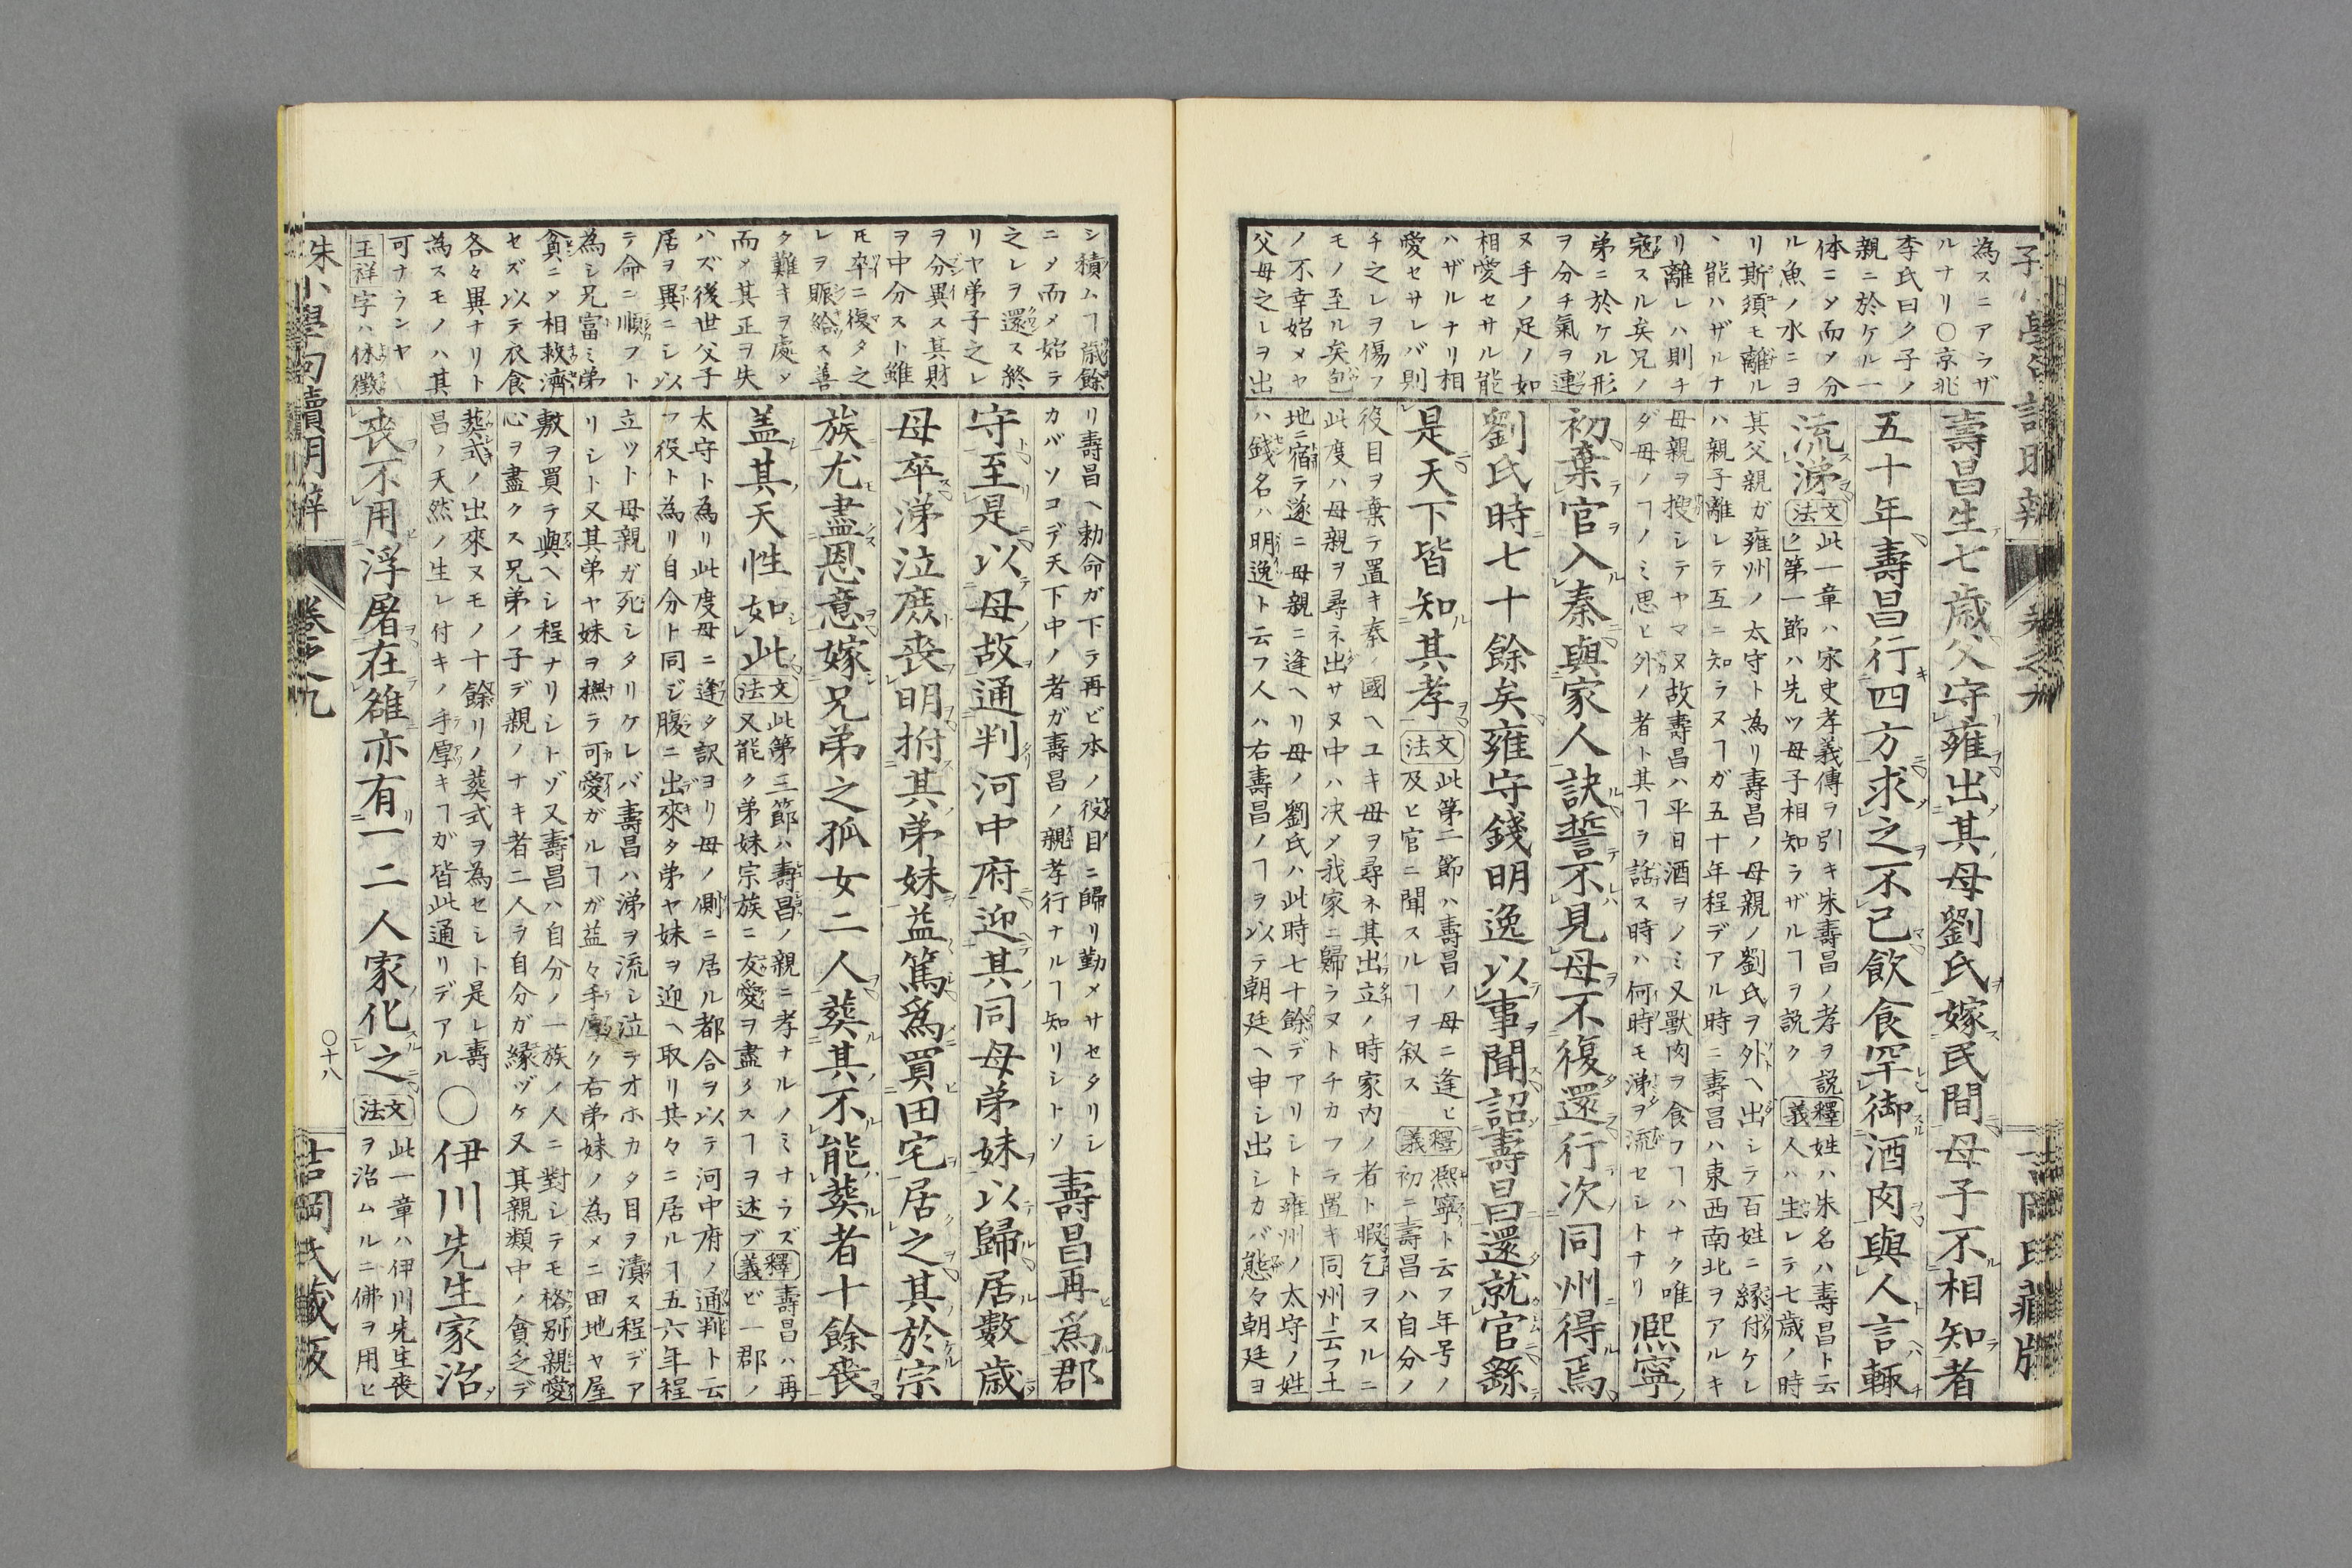 為スニアラザ
ルナリ〇京兆
李氏曰ク子ノ
親ニ於ケル一
体ニ〆而〆分
ル魚ノ水ニヨ
リ斯須モ離ル
ヽ能ハザルナ
リ離レハ則チ
寇スル矣兄ノ
弟ニ於ケル形
ヲ分チ氣ヲ連
ヌ手ノ足ノ如
相愛セサル能
ハザルナリ相
愛セサレバ則
チ之レヲ傷フ
モノ至ル矣
ノ不幸始メヤ
父母之レヲ出
壽昌生七歳父守雍出其母劉氏嫁民間母子不相知者
五十年壽昌行四方求之不已飲食罕御酒肉與人言輙
流涕
文法
此一章ハ宋史孝義傳ヲ引キ朱壽昌ノ孝ヲ説
ク第一節ハ先ツ母子相知ラザルヿヲ説ク
釋義
姓ハ朱名ハ壽昌ト云
人ハ生レテ七歳ノ時
其父親ガ雍州ノ太守ト為リ壽昌ノ母親ノ劉氏ヲ外ヘ出シテ百姓ニ縁付ケレ
ハ親子離レテ互ニ知ラヌヿガ五十年程デアル時ニ壽昌ハ東西南北ヲアルキ
母親ヲ搜シテヤマヌ故壽昌ハ平日酒ヲノミ又獸肉ヲ食フヿハナク唯
ダ母ノヿノミ思ヒ外ノ者ト其ヿヲ話ス時ハ何時モ涕ヲ流セシトナリ
熈寧
初棄官入秦與家人訣誓不見母不復還行次同州得焉
劉氏時七十餘矣雍守錢明逸以事聞詔壽昌還就官繇
是天下皆知其孝
文法
此第二節ハ壽昌ノ母ニ逢ヒ
及ヒ官ニ聞スルヿヲ叙ス
釋義
熈寧ト云フ年号ノ
初ニ壽昌ハ自分ノ
役目ヲ棄テ置キ秦ノ國ヘユキ母ヲ尋ネ其出立ノ時家内ノ者ト暇乞ヲスルニ
此度ハ母親ヲ尋ネ出サヌ中ハ决〆我家ニ歸ラヌトチカフテ置キ同州ト云フ土
地ニ宿テ遂ニ母親ニ逢ヘリ母ノ劉氏ハ此時七十餘デアリシト雍州ノ太守ノ姓
ハ錢名ハ明逸ト云フ人ハ右壽昌ノヿヲ以テ朝廷ヘ申シ出シカバ態々朝廷ヨ
シ積ムヿ歳餘
ニ〆而〆始テ
之レヲ還ス終
リヤ弟子之レ
ヲ分異ス其財
ヲ中分スト雖
𪜈卒ニ復タ之
レヲ賑給ス善
ク難キヲ處〆
而〆其正ヲ失
ハズ後世父子
居ヲ異ニシ以
テ命ニ順フト
為シ兄富ミ弟
貧ニ〆相救濟
セズ以テ衣食
各々異ナリト
為スモノハ其
可ナランヤ
王祥字ハ休徴
リ壽昌ヘ勅命ガ下テ再ビ本ノ役目ニ歸リ勤メサセタリシ
カバソコデ天下中ノ者ガ壽昌ノ親孝行ナルヿ知リシトソ
壽昌再爲郡
守至是以母故通判河中府迎其同母弟妹以歸居數歳
母卒涕泣庶喪明拊其弟妹益篤爲買田宅居之其於宗
族尤盡恩意嫁兄弟之孤女二人葬其不能葬者十餘喪
盖其天性如此
文法
此第三節ハ壽昌ノ親ニ孝ナルノミナラズ
又能ク弟妹宗族ニ友愛ヲ盡タスヿヲ述ブ
釋義
壽昌ハ再
ビ一郡ノ
太守ト為リ此度母ニ逢タ訳ヨリ母ノ側ニ居ル都合ヲ以テ河中府ノ通判ト云
フ役ト為リ自分ト同ジ腹ニ出來タ弟ヤ妹ヲ迎ヘ取リ其々ニ居ルヿ五六年程
立ツト母親ガ死シタリケレバ壽昌ハ涕ヲ流シ泣テオホカタ目ヲ漬ス程デア
リシト又其弟ヤ妹ヲ橅テ可愛ガルヿガ益々手厚ク右弟妹ノ為メニ田地ヤ屋
敷ヲ買テ與ヘシ程ナリシトゾ又壽昌ハ自分ノ一族ノ人ニ對シテモ格別親愛
心ヲ盡クス兄弟ノ子デ親ノナキ者二人ヲ自分ガ縁ヅケ又其親類中ノ貪乏デ
葬式ノ出來ヌモノ十餘リノ葬式ヲ為セシト是レ壽
昌ノ天然ノ生レ付キノ手厚キヿガ皆此通リデアル
〇伊川先生家治
喪不用浮屠在雒亦有一二人家化之
文法
此一章ハ伊川先生喪
ヲ治ムルニ佛ヲ用ヒ
朱小學句讀明辨
卷之九
〇十八
吉岡氏藏版